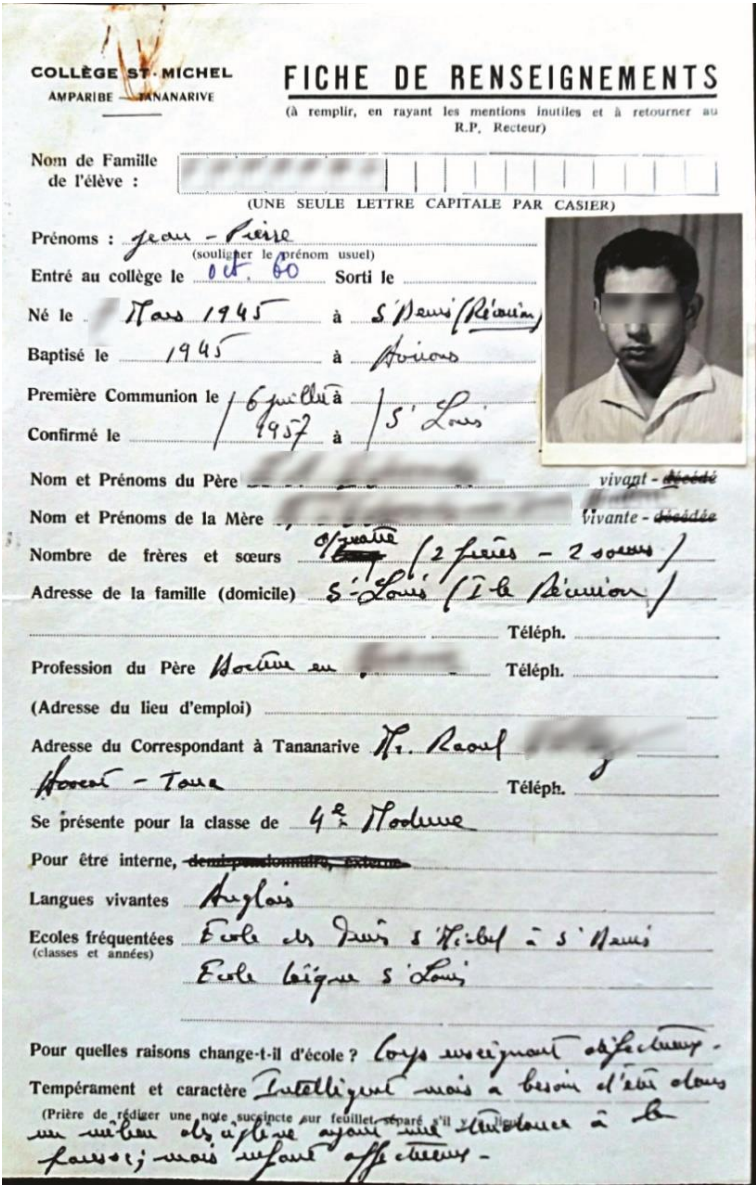 COLLÈGE ST-MICHEL
AMPARIBE — TANANARIVE
FICHE DE RENSEIGNEMENTS
(à remplir, en rayant les mentions inutiles et à retourner au
R.P. Recteur)
Nom de Famille
de l'élève :
(UNE SEULE LETTRE CAPITALE PAR CASIER)
Prénoms : Jean - Pierre
(souligner le prénom usuel)
Entré au collège le oct. 60 Sorti le
Né le Mars 1945 à St Denis (Réunion)
Baptisé le 1945 à Avirons
Première Communion le 6 juillet à
Confirmé le 1957 à St Louis
Nom et Prénoms du Père vivant - décédé
Nom et Prénoms de la Mère vivante - décédée
Nombre de frères et sœurs quatre (2 frères - 2 soeurs)
Adresse de la famille (domicile) St-Louis (Ile Réunion)
Téléph.
Profession du Père Docteur en Téléph.
(Adresse du lieu d'emploi)
Adresse du Correspondant à Tananarive Mr. Raoul
Avocat - Tana Téléph.
Se présente pour la classe de 4e Moderne
Pour être interne, demi-pensionnaire, externe
Langues vivantes Anglais
Ecoles fréquentées Ecole des St Michel à St Denis
(classes et années)
Ecole laïque St Louis
Pour quelles raisons change-t-il d'école ? Corps enseignant défectueux.
Tempérament et caractère Intelligent mais a besoin d'être dans
(Prière de rédiger une note succincte sur feuillet séparé s'il y a lieu)
un milieu ayant une tendance à la
paresse; mais enfant affectueux -